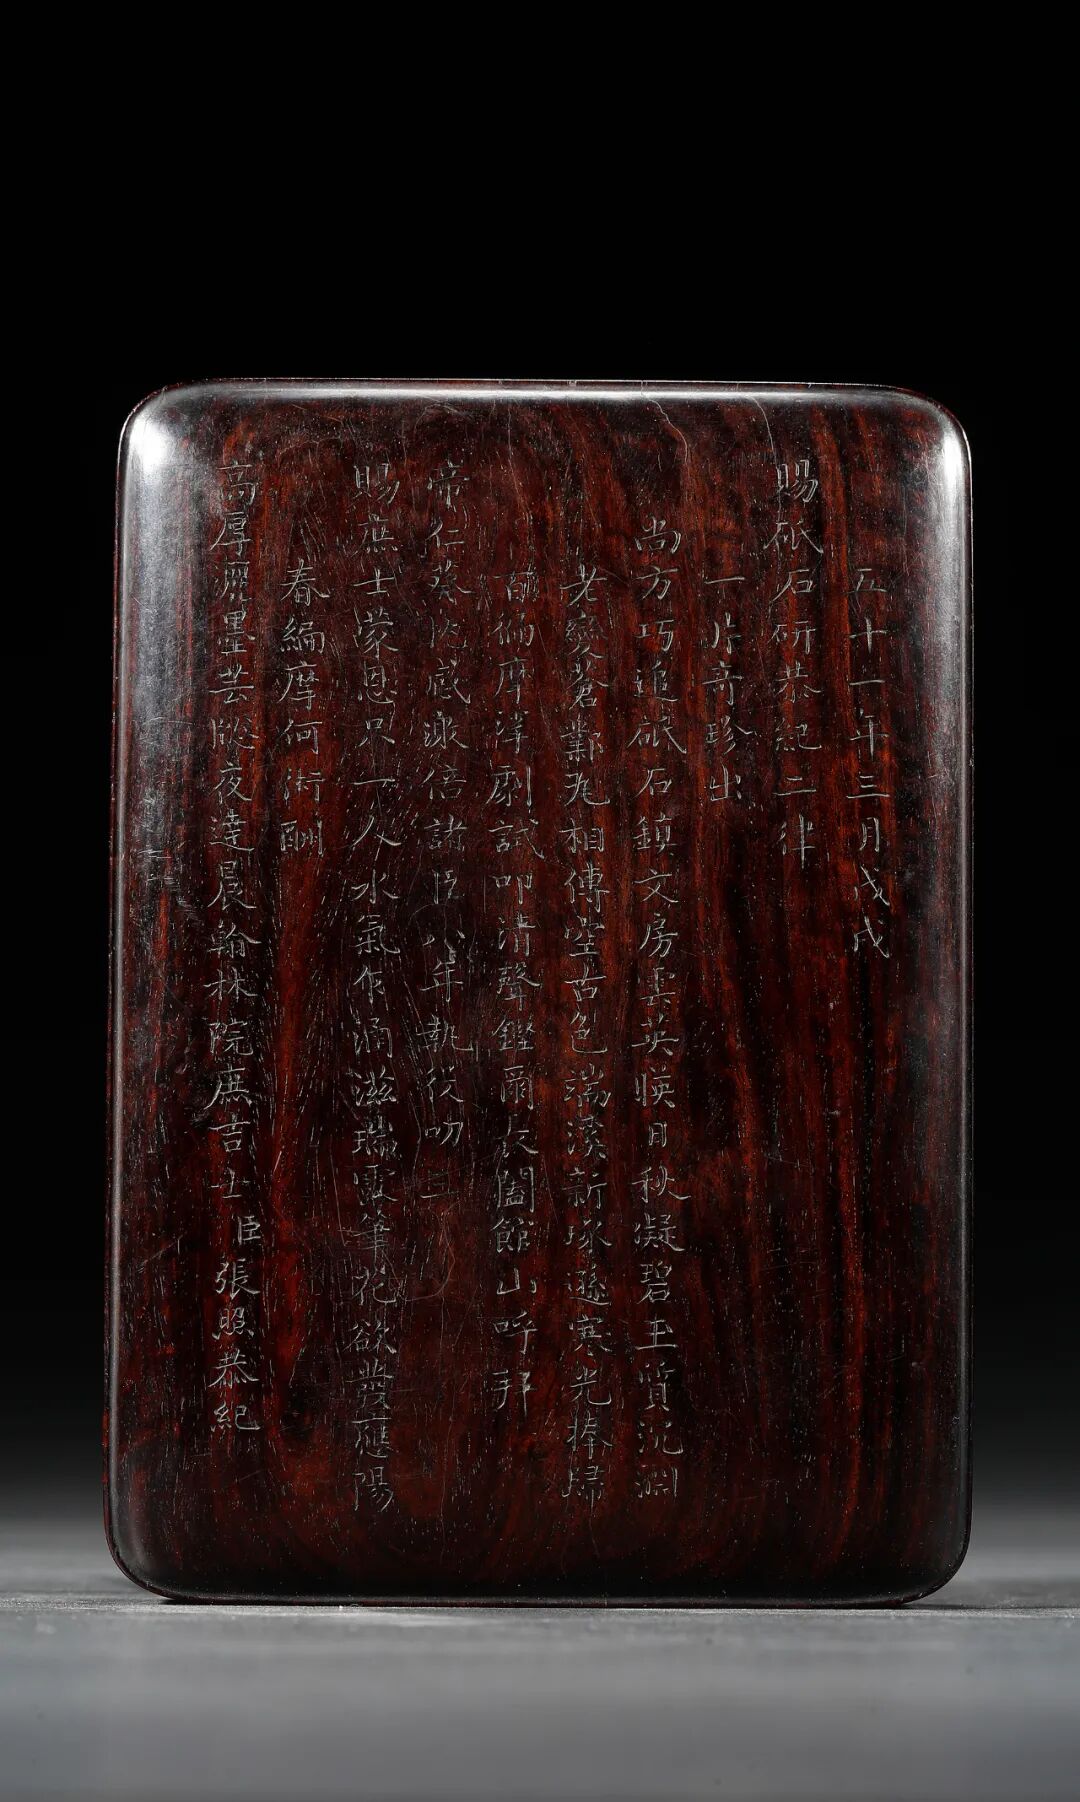 五十一年三月戊戌
賜砥石研恭紀二律
一片奇珍出
尚方巧追砥石鎮文房雲英暎日秋凝碧玉質沉淵
老變蒼鄴瓦相傳空古色端溪新琢遜寒光捧歸
葡匐摩挲劇試叩清聲鏗爾長闔館山呼拜
帝仁蔡沈感最倍諸臣八年執役叨三
賜庶士蒙恩只一人水氣作涌滋瑞靄筆花欲發應陽
春編摩何術酬
高厚灑墨芸牕夜達晨翰林院庶吉士臣張照恭紀